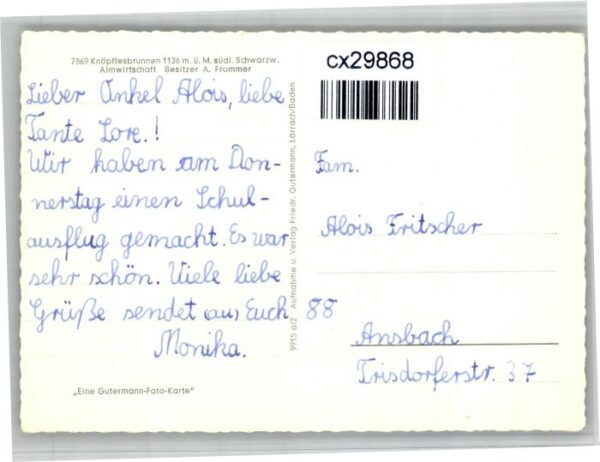 7869 Knöpflesbrunnen 1126 m. ü. M. südl. Schwarzw.
Almwirtschaft Besitzer A. Frummer
cx29868
Lieber Onkel Alois, liebe
Tante Lore.!
Wir haben am Don-
nerstag einen Schul-
ausflug gemacht. Es war
sehr schön. Viele liebe
Grüße sendet aus Euch
Monika.
„Eine Gutermann-Foto-Karte"
9915 a/2 Aufnahme u. Verlag Friedr. Gutermann, Lörrach/Baden
Fam.
Alois Fritscher
88
Ansbach
Trisdorferstr. 37